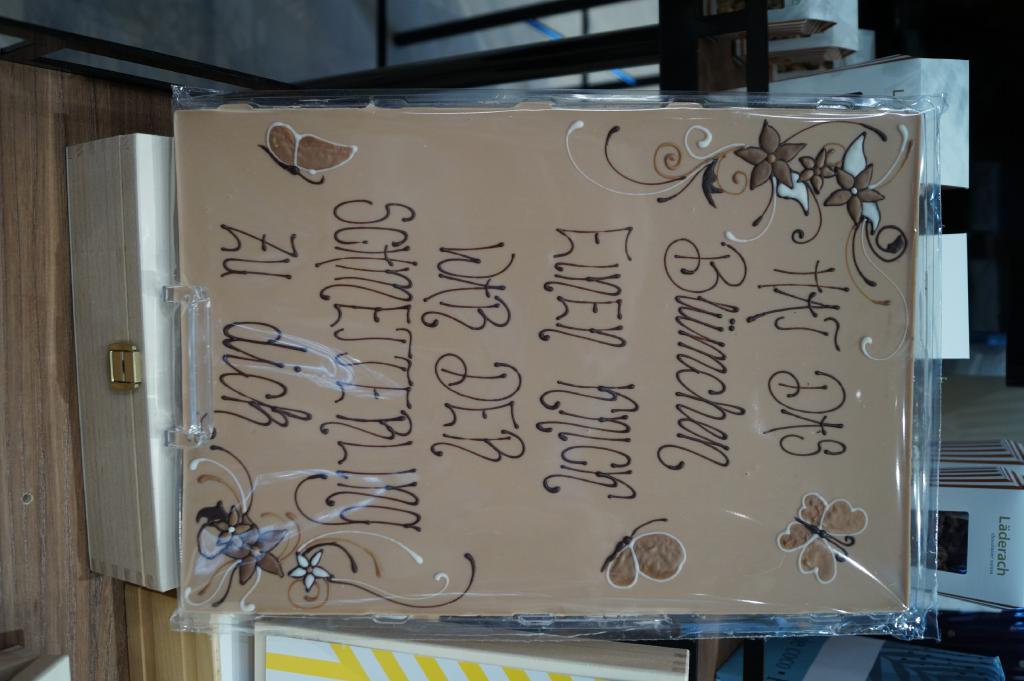 HAT DAS
Blümchen
EINEN KNICK
WAR DER
SCHMETTERLING
ZU dick
Läderach